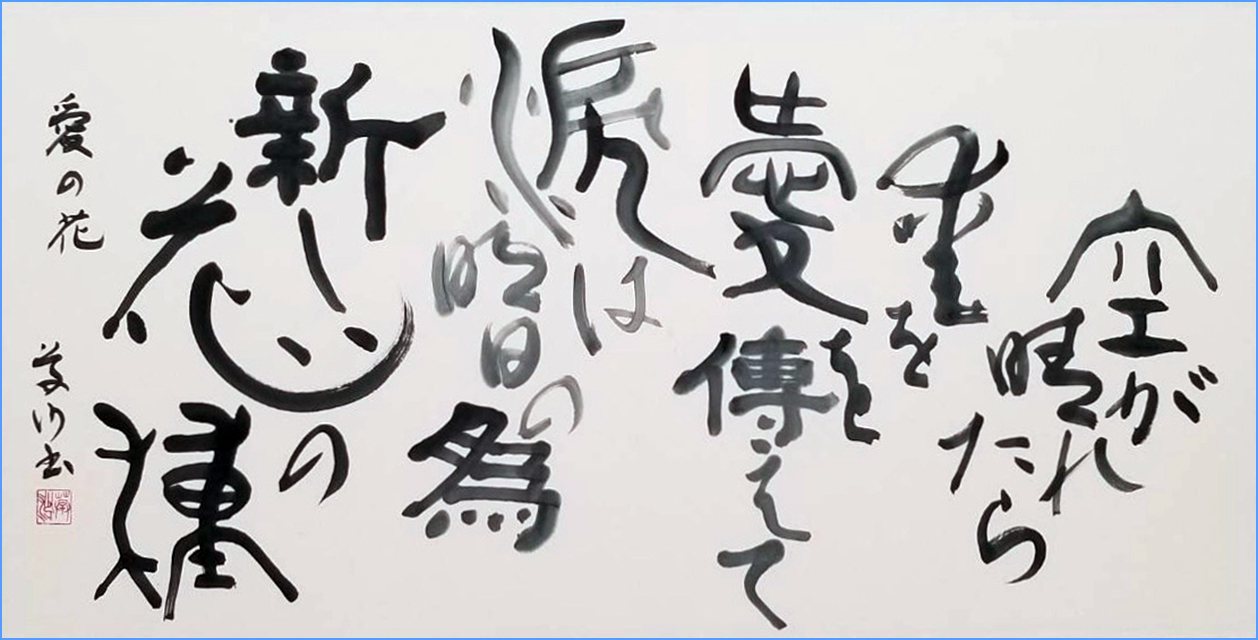 空が
晴れ
たら
愛を
愛を
傳えて
涙は
明日の
為
新しい
花の
種
愛の花